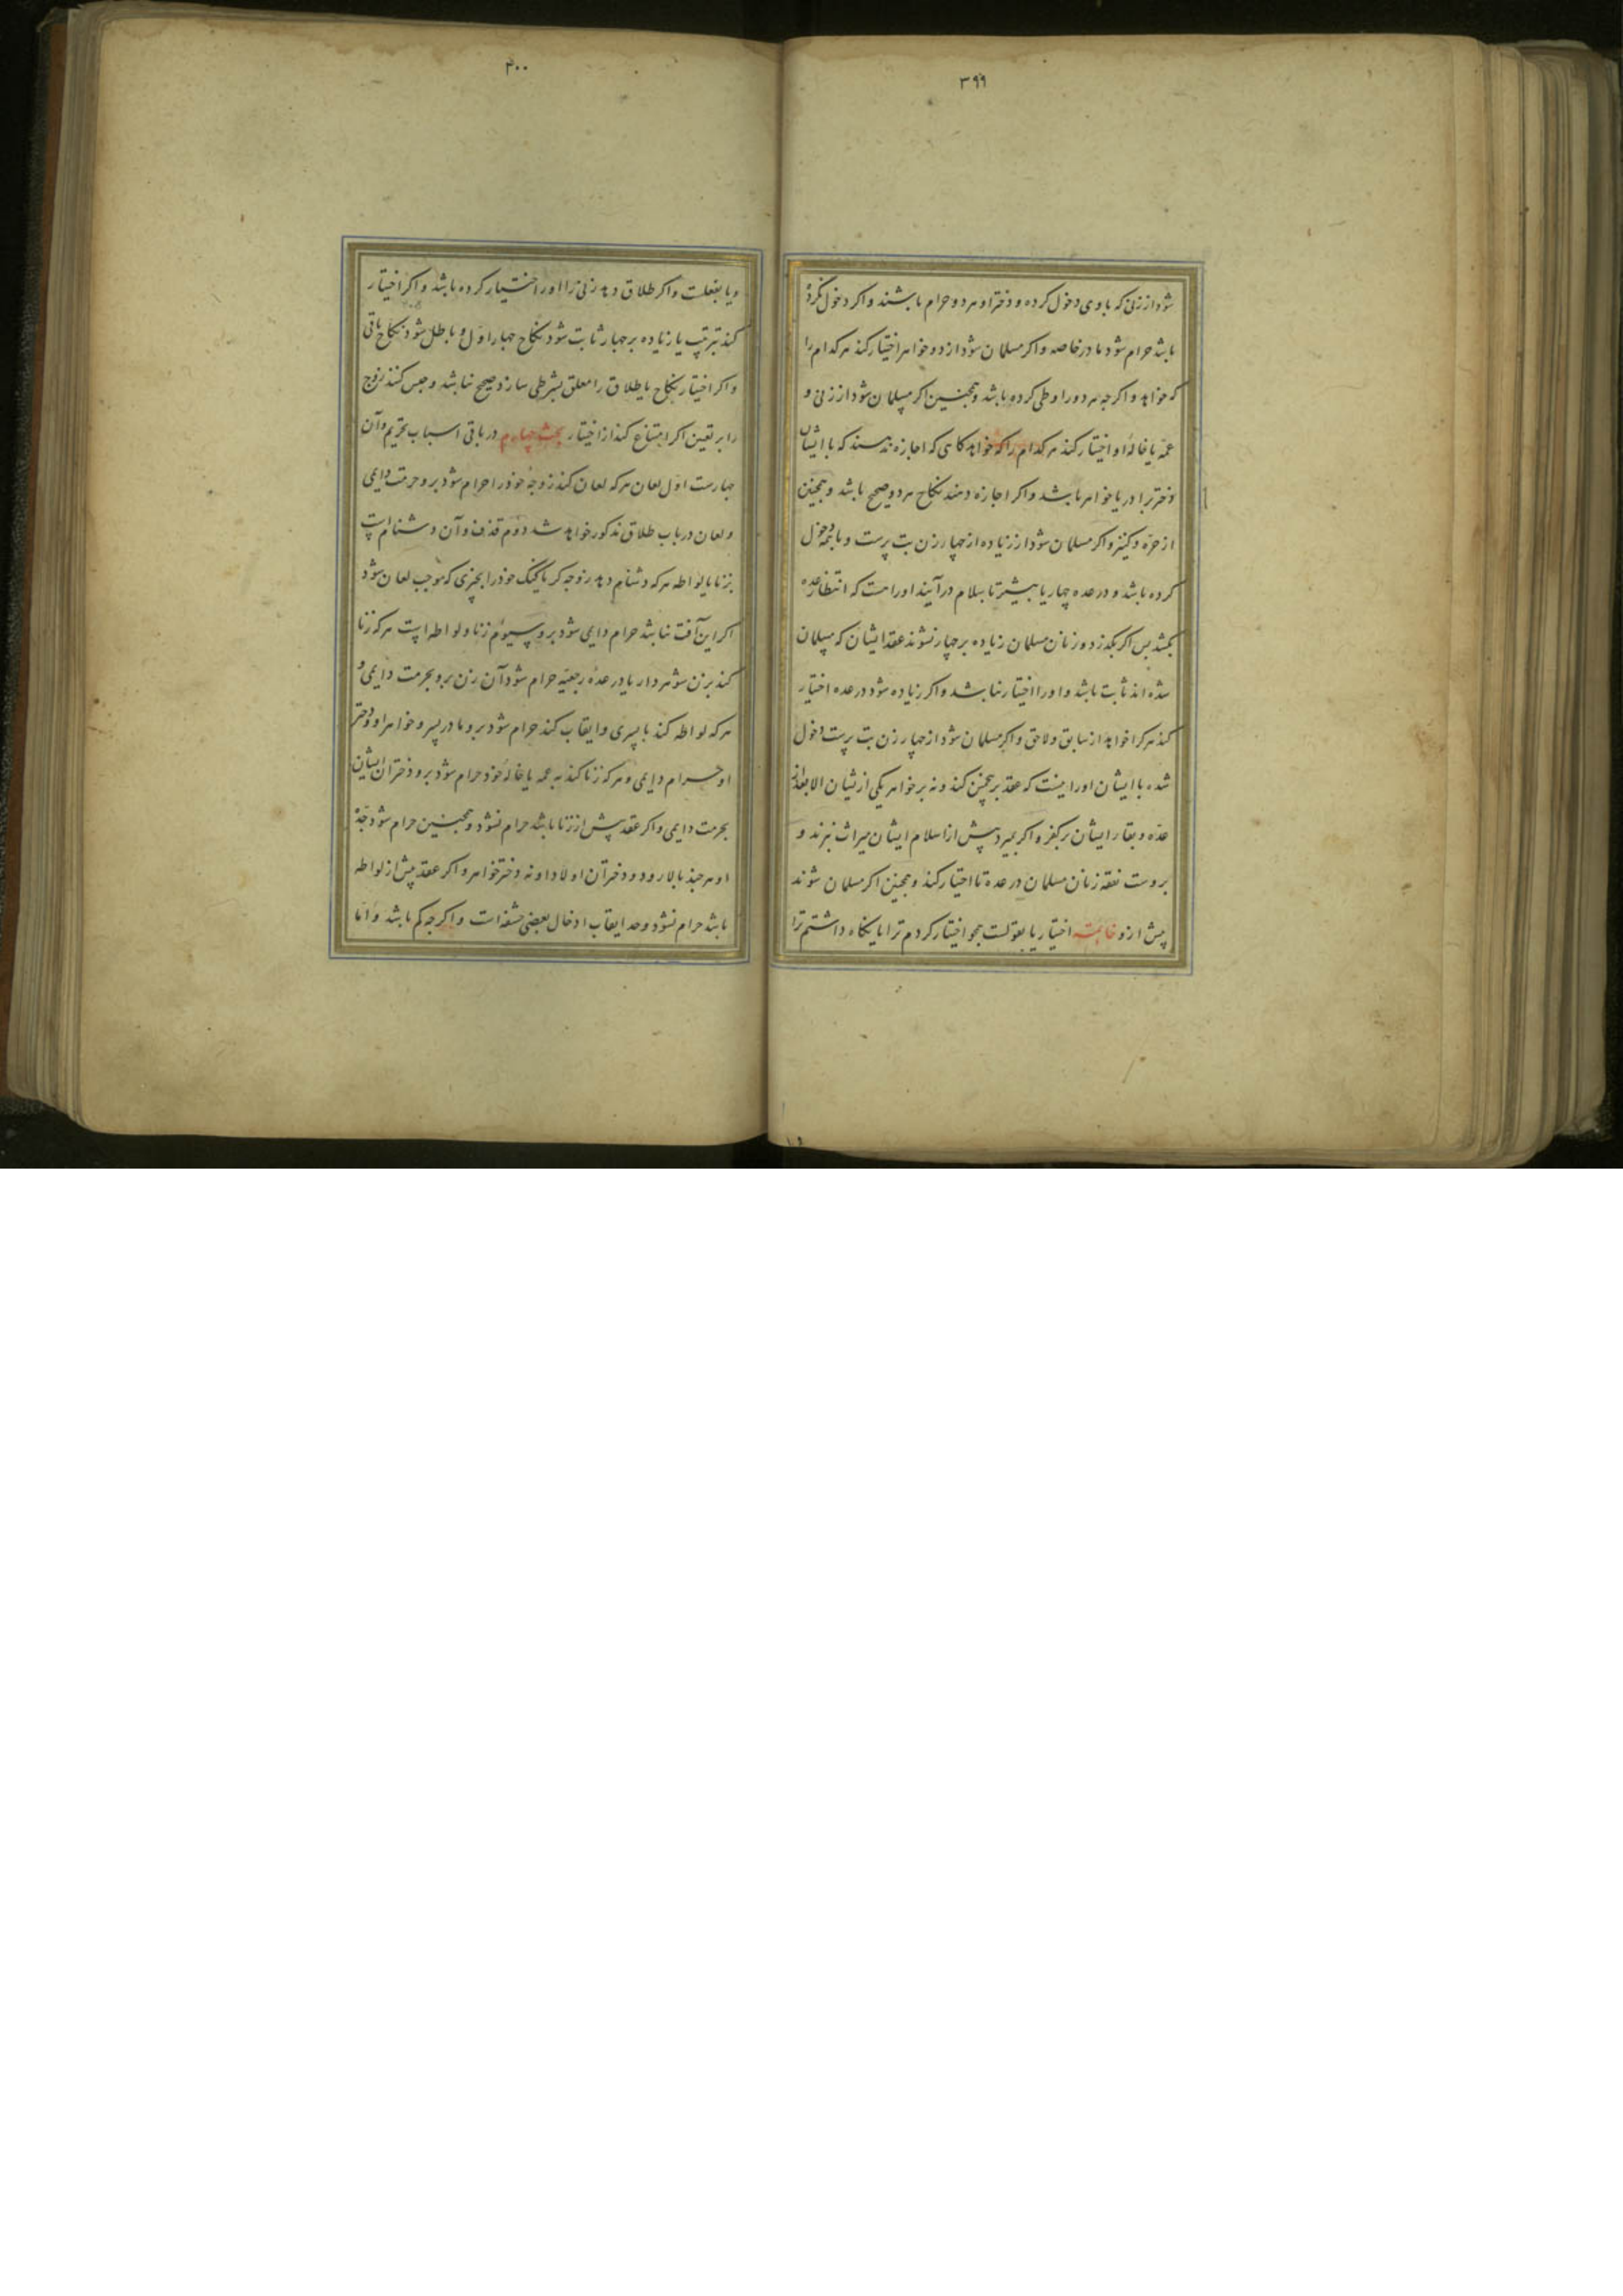 ۳۹۹
شود از زنی که با وی دخول کرده و دختر او هر دو حرام باشند و اکر دخول نکرده
باشد حرام شود مادر خاصه و اکر مسلمان شود از دو خواهر اختیار کند هر کدام را
که خواهد و اکرچه هر دو را وطی کرده باشد و همچنین اکر مسلمان شود از زنی و
عمه یا خالهٔ او اختیار کند هر کدام را که خواهد کاهی که اجازه ندهند که با ایشان
دختر برادر یا خواهر باشد و اکر اجازه دهند نکاح هر دو صحیح باشد و همچنین
از حره و کنیز و اکر مسلمان شود از زیاده از چهار زن بت پرست و با همه دخول
کرده باشد و در عده چهار یا بیشتر باسلام درآیند او راست که انتظار عده
بکشد پس اکر بکذرد و زنان مسلمان زیاده بر چهار نشوند عقد ایشان که مسلمان
شده اند ثابت باشد و او را اختیار نباشد و اکر زیاده شود در عده اختیار
کند هر کرا خواهد از سابق و لاحق و اکر مسلمان شود از چهار زن بت پرست دخول
شده با ایشان او را نیست که عقد بر پنجمین کند و نه بر خواهر یکی از ایشان الا بعد از
عده و بقاء ایشان بر کفر و اکر بمیرد پیش از اسلام ایشان میراث نبرند و
بروست نفقه زنان مسلمان در عده تا اختیار کند و همچنین اکر مسلمان شوند
پیش ازو خاتمه اختیار یا بقولست همچو اختیار کردم ترا یا نکاه داشتم ترا
۴۰۰
و یا بفعلست و اکر طلاق دهد زنی را او را اختیار کرده باشد و اکر اختیار
کند بترتیب یا زیاده بر چهار ثابت شود نکاح چهار اول و باطل شود نکاح باقی
و اکر اختیار نکاح یا طلاق را معلق بشرطی سازد صحیح نباشد و حبس کنند زوج
را بر تعیین اکر امتناع کند از اختیار بحث چهارم در باقی اسباب تحریم و آن
چهارست اول لعان هر که لعان کند زوجهٔ خود را حرام شود برو حرمت دایمی
و لعان در باب طلاق مذکور خواهد شد دوم قذف و آن دشنام است
بزنا یا لواطه هر که دشنام دهد زوجه کر یا کنک خود را بچیزی که موجب لعان شود
اکر این آفت نباشد حرام دایمی شود برو سیوم زنا و لواطه است هر که زنا
کند بزن شوهردار یا در عدهٔ رجعیه حرام شود آن زن برو بحرمت دایمی و
هر که لواطه کند با پسری و ایقاب کند حرام شود برو مادر پسر و خواهر او و دختر
او حرام دایمی و هر که زنا کند به عمه یا خالهٔ خود حرام شود برو دختران ایشان
بحرمت دایمی و اکر عقد پیش از زنا باشد حرام نشود و همچنین حرام شود جدهٔ
او هر چند بالا رود و دختران اولاد او نه دختر خواهر و اکر عقد پیش از لواطه
باشد حرام نشود و حد ایقاب ادخال بعضی حشفه است و اکرچه کم باشد و اما